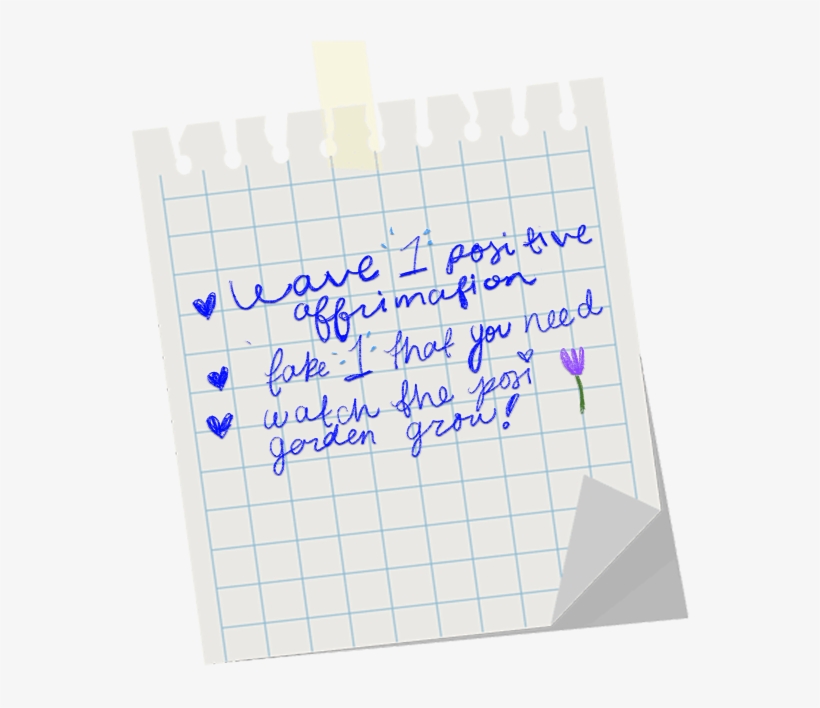 leave 1 positive
affrimation
take 1 that you need
watch the posi
garden grow!